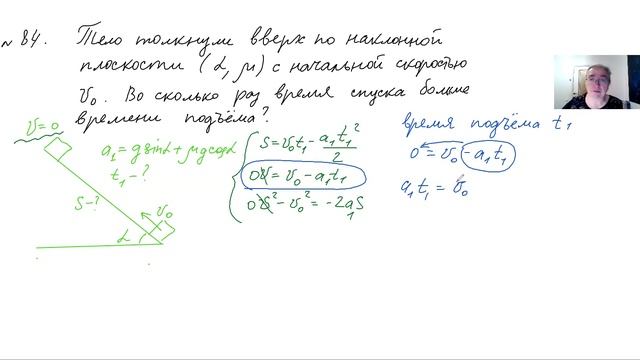 № 84. Тело толкнули вверх по наклонной
плоскости (α, μ) с начальной скоростью
v₀. Во сколько раз время спуска больше
времени подъёма?
v=0
a₁=g sinα+μg cosα
t₁-?
S-?
v₀
α
S=v₀t₁-a₁t₁²/2
0v=v₀-a₁t₁
0v²-v₀²=-2a₁S
время подъёма t₁
0=v₀-a₁t₁
a₁t₁=v₀